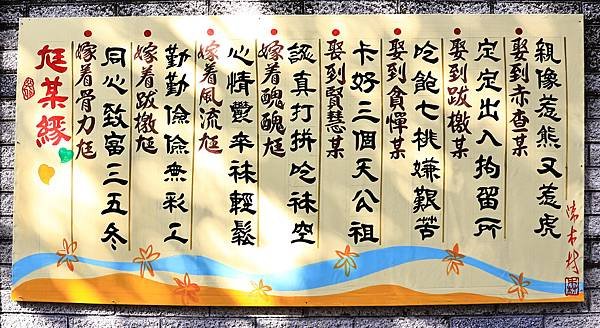 尪某緣
嫁着骨力尪
同心致富三五冬
嫁着跋檄尪
勤勤儉儉無彩工
嫁着風流尪
心情鬱卒袂輕鬆
嫁着醜醜尪
認真打拼吃袂空
娶到賢慧某
卡好三個天公祖
娶到貪憚某
吃飽七桃嫌艱苦
娶到跋檄某
定定出入拘留所
娶到赤查某
親像惹熊又惹虎